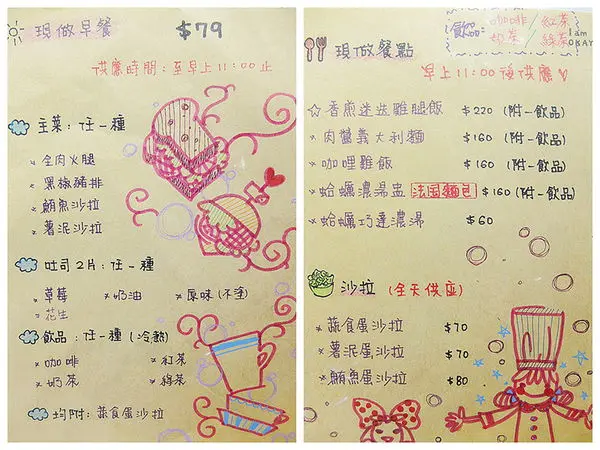 現做早餐 $79
供應時間:至早上11:00止
主菜:任一種
全肉火腿
黑椒豬排
鮪魚沙拉
薯泥沙拉
吐司2片:任一種
草莓 奶油 原味(不塗)
花生
飲品:任一種(冷熱)
咖啡 紅茶
奶茶 綠茶
均附:蔬食蛋沙拉
飲品: 咖啡/紅茶
奶茶/綠茶
I am OKAY
現做餐點
早上11:00後供應
香煎迷迭雞腿飯 $220(附一飲品)
肉醬義大利麵 $160(附一飲品)
咖哩雞飯 $160(附一飲品)
蛤蠣濃湯盅 法國麵包 $160(附一飲品)
蛤蠣巧達濃湯 $60
沙拉(全天供應)
蔬食蛋沙拉 $70
薯泥蛋沙拉 $70
鮪魚蛋沙拉 $80